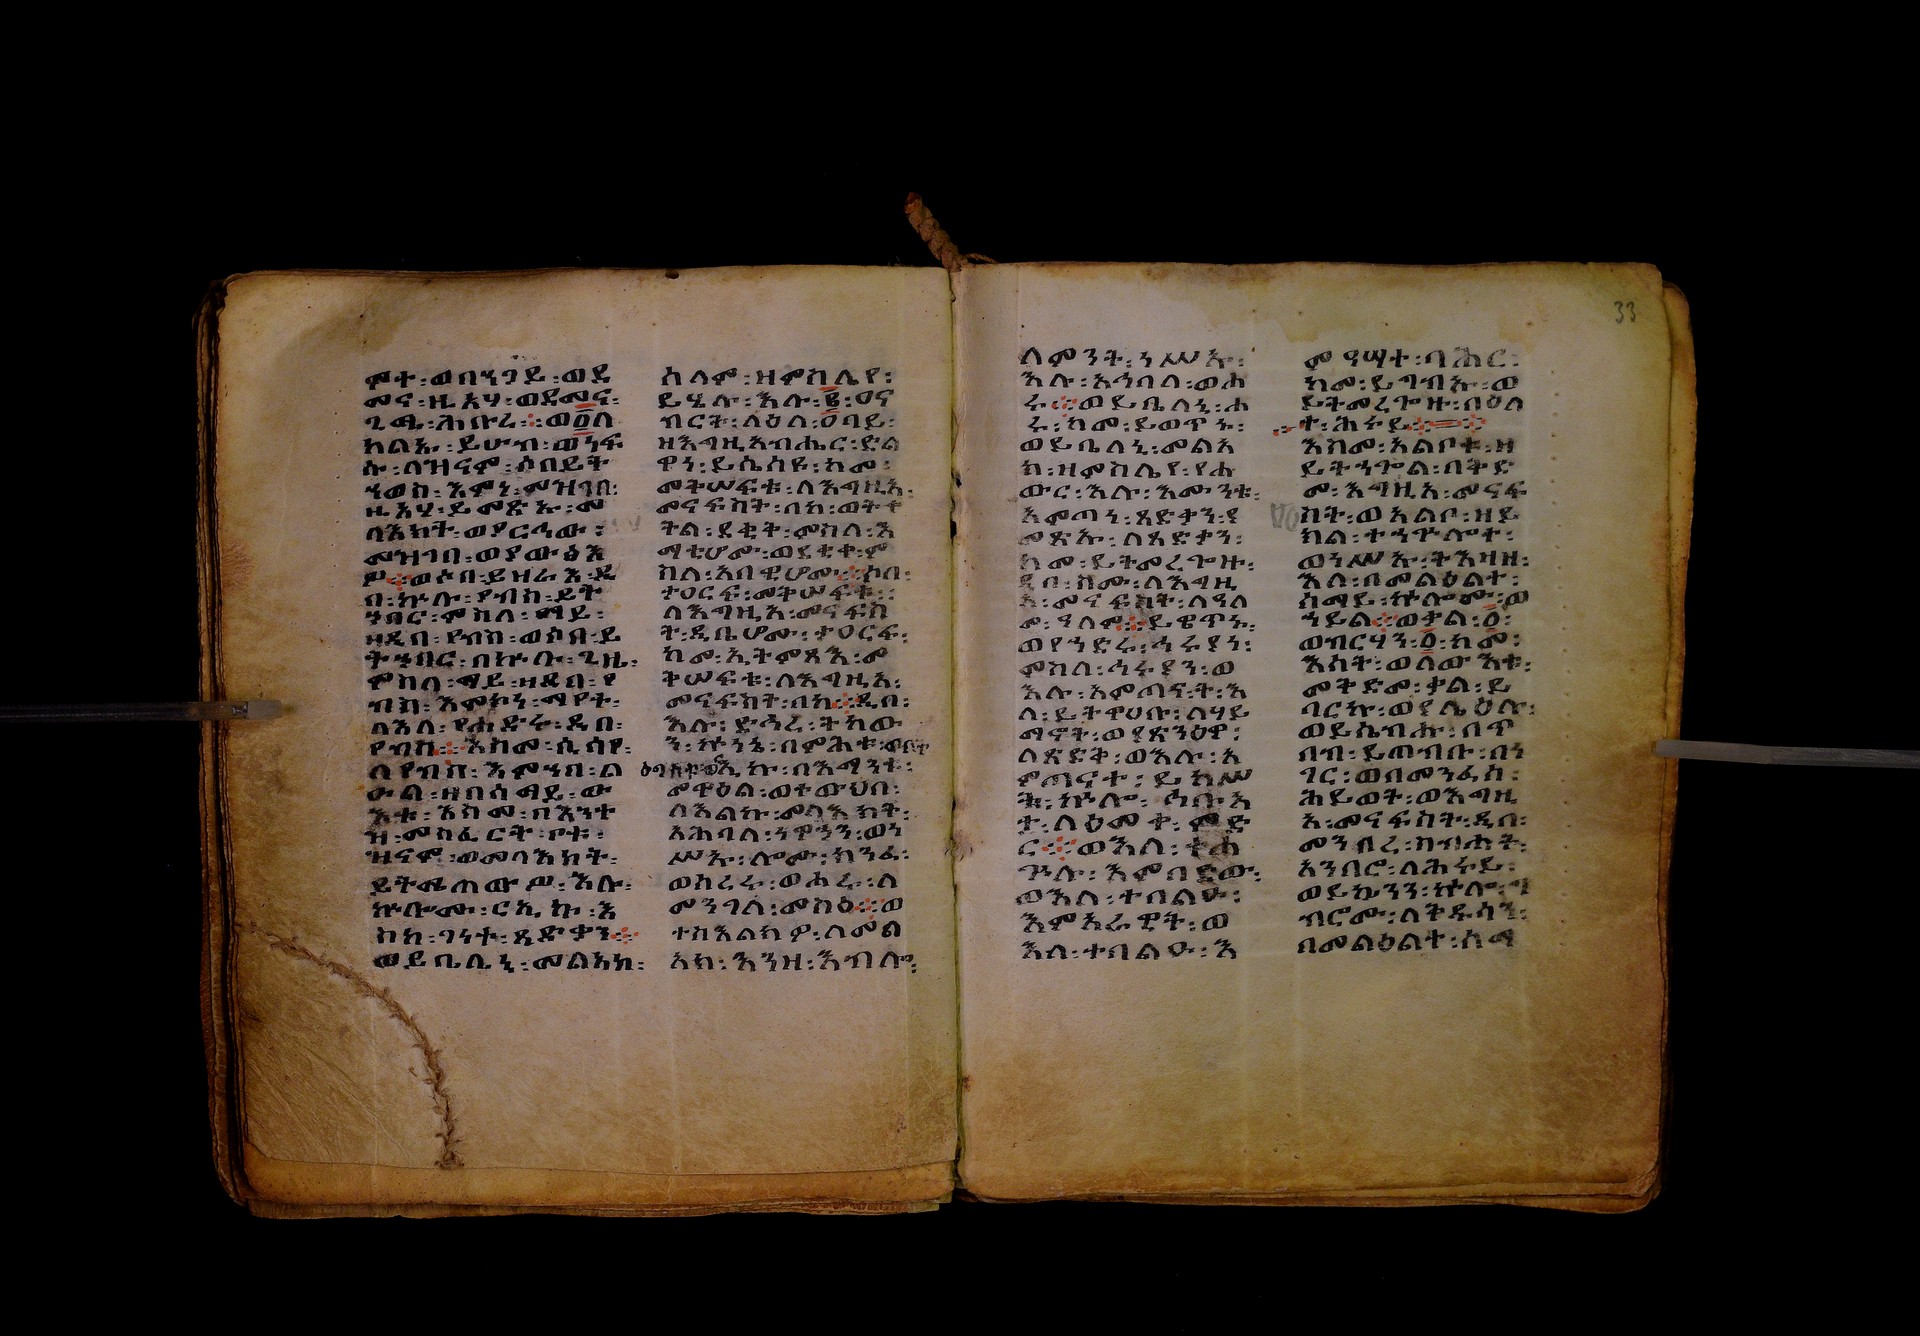 ምተ፡ወበኀጋይ፡ወደ
መና፡ዚአሃ፡ወደመና፡
ጊሜ፡ሕቡረ፨ወ፩ለ
ካልኡ፡ይሁብ፡ወነፍ
ሱ፡ለዝናም፡ሶበይት
ኀወስ፡እምነ፡መዝገበ፡
ዚአሃ፡ይመጽኡ፡መ
ላእክት፡ወያርኅው፡
መዝገበ፡ወያውፅእ
ዎ፨ወሶበ፡ይዘራእ፡ዲ
በ፡ኵሉ፡የብስ፡ይት
ኀበር፡ምስለ፡ማይ፡
ዘዲበ፡የብስ፡ወሶበ፡ይ
ትኀበር፡በኵሉ፡ጊዜ፡
ምስለ፡ማይ፡ዘዲበ፡የ
ብስ፡እምኮነ፡ማየት፡
ለእለ፡የሐድሩ፡ዲበ፡
የብስ፨እስመ፡ሲሳየ፡
ለየብስ፡እምኀበ፡ል
ዑል፡ዘበሰማይ፡ው
እቱ፡እስመ፡በእንተ
ዝ፡መስፈርት፡ቦቱ፡
ዝናም፡ወመላእክት፡
ይትሜጠውዎ፡እሉ፡
ኵሎሙ፡ርኢኩ፡እ
ስከ፡ገነተ፡ጻድቃን፨
ወይቤለኒ፡መልአክ፡
ሰላም፡ዘምስሌየ፡
ይሄሉ፡እሉ፡፪፡ዐና
ብርት፡ለዕለ፡ዐባይ፡
ዘእግዚአብሔር፡ድል
ዋነ፡ይሴሰዩ፡ከመ፡
መትሠፍቱ፡ለእግዚአ፡
መናፍስት፡በከ፡ወትቀ
ትል፡ደቂቅ፡ምስለ፡እ
ማቲሆሙ፡ወደቂቀ፡ም
ስለ፡አበዊሆሙ፨ሶበ፡
ተዐርፍ፡መትሠፍቱ፡
ለእግዚአ፡መናፍስ
ት፡ዲቤሆሙ፡ተዐርፍ፡
ከመ፡ኢትምጻእ፡መ
ትሠፍቱ፡ለእግዚአ፡
መናፍስት፡በከ፨ዲበ፡
እሉ፡ድኅረ፡ትከው
ን፡ኵነኔ፡በምሕቱ፡
በእማንቱ፡
መዋዕል፡ወተውህበ፡
ለእልኩ፡መላእክት፡
አሕባለ፡ነዋኅን፡ወነ
ሥኡ፡ሎሙ፡ክንፈ፡
ወሰረሩ፡ወሐሩ፡ለ
መንገለ፡መስዕ፨ወ
ተስእልክዎ፡ለመል
አክ፡እንዘ፡እብሎ፡
33
ለምንት፡ነሥኡ፡
እሉ፡አኅባለ፡ወሐ
ሩ፨ወይቤለኒ፡ሐ
ሩ፡ከመ፡ይወጥኑ፡
ወይቤለኒ፡መልአ
ክ፡ዘምስሌየ፡የሐ
ውር፡እሉ፡እሙንቱ፡
አምጣነ፡ጻድቃን፡ያ
መጽኡ፡ለጻድቃን፡
ከመ፡ይትመረጐዙ፡
ዲበ፡ስሙ፡ለእግዚ
አ፡መናፍስት፡ለዓለ
መ፡ዓለም፨ይዌጥኑ፡
ወየኀድሩ፡ኅሩያን፡
ምስለ፡ኅሩያን፡ወ
እሉ፡አምጣናት፡እ
ለ፡ይትዋሀቡ፡ለሃይ
ማኖት፡ወያጸንዕዋ፡
ለጽድቅ፡ወእሉ፡አ
ምጣናተ፡ይከሥ
ቱ፡ኵሎ፡ኅቡአ
ተ፡ለዕመተ፡ምድ
ር፨ወእለ፡ተሐ
ጕሉ፡እምበድው፡
ወእለ፡ተበልዑ፡
እምአራዊት፡ወ
እለ፡ተበልዑ፡እ
ምዓሣተ፡ባሕር፡
ከመ፡ይግብኡ፡ወ
ይትመረጐዙ፡በዕለ
ተ፡ኅሩይ፨
እስመ፡አልቦቱ፡ዘ
ይትኀጐል፡በቅድ
መ፡እግዚአ፡መናፍ
ስት፡ወአልቦ፡ዘይ
ክል፡ተኀጕሎተ፡
ወነሥኡ፡ትእዛዘ፡
እለ፡በመልዕልተ፡
ሰማይ፡ኵሎሙ፡ወ
ኀይል፨ወቃል፡፩፡
ወብርሃን፡፩፡ከመ፡
እሳት፡ወለውእቱ፡
መቅድመ፡ቃል፡ይ
ባርኩ፡ወያሌዕሉ፡
ወይሴብሑ፡በጥ
በብ፡ይጠብቡ፡በነ
ገር፡ወበመንፈሰ፡
ሕይወት፡ወእግዚ
አ፡መናፍስት፡ዲበ፡
መንበረ፡ስብሐት፡
አንበሮ፡ለኅሩይ፡
ወይኴንን፡ኵሎ፡ግ
ብሮሙ፡ለቅዱሳን፡
በመልዕልት፡ሰማ